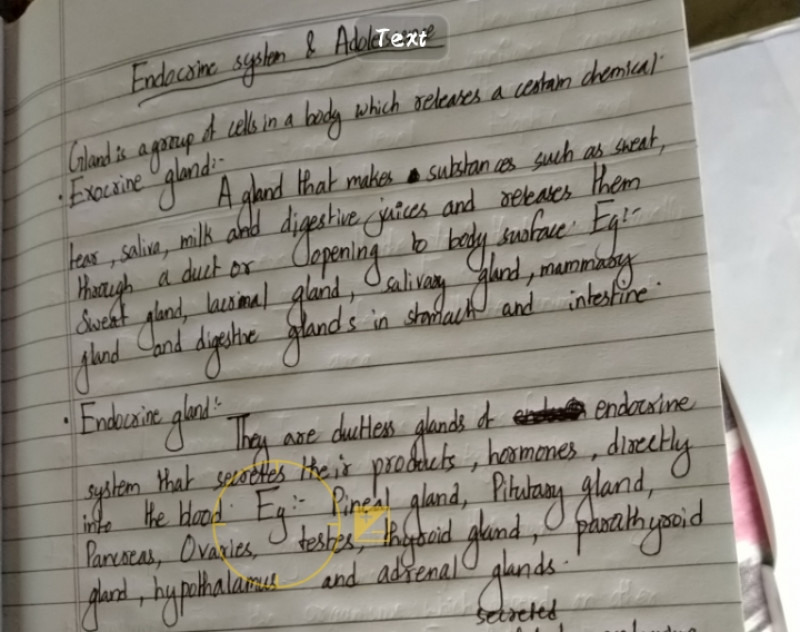 Text
Endocrine system & Adolescence
Gland is a group of cells in a body which releases a certain chemical.
• Exocrine gland:-
A gland that makes substances such as sweat,
tear, saliva, milk and digestive juices and releases them
through a duct or opening to body surface. Eg:-
Sweat gland, lacrimal gland, salivary gland, mammary
gland and digestive glands in stomach and intestine.
• Endocrine gland:-
They are ductless glands of endocrine
system that secretes their products, hormones, directly
into the blood. Eg:- Pineal gland, Pitutary gland,
Pancreas, Ovaries, testes, thyroid gland, parathyroid
gland, hypothalamus and adrenal glands.
secreted